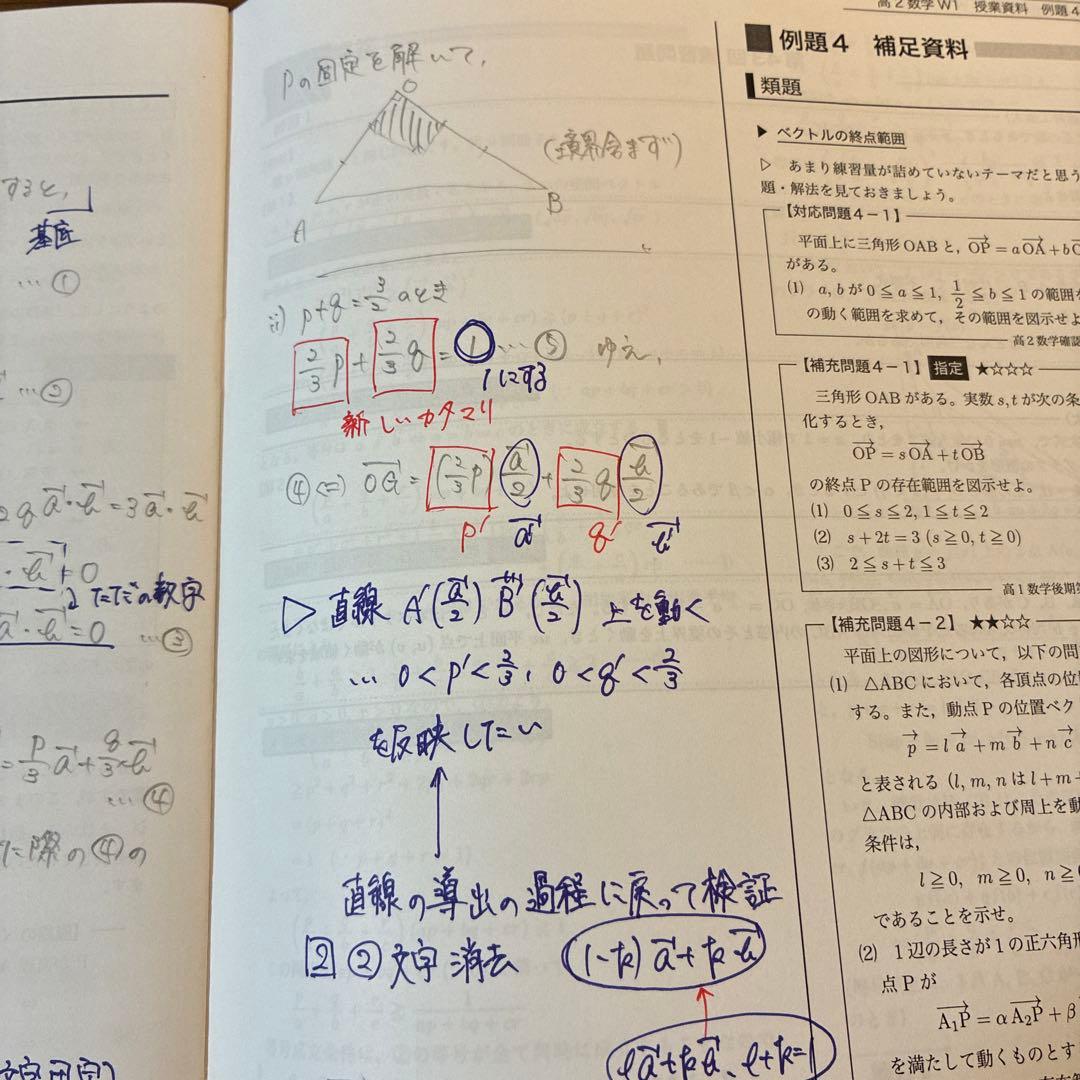 すると、
基底
… ①
… ②
2q a・b = 3 a・b
・b ≠ 0
ただの数字
a・b = 0 … ③
= p/3 a + q/3 b
… ④
に際の④の
Pの固定を解いて、
O
(境界含まず)
A
B
ii) p+q = 3/2 のとき
2/3 p + 2/3 q = 1 … ⑤ ゆえ、
1にする
新しいカタマリ
④ ⇔ OQ = (2/3 p) a/2 + 2/3 q b/2
p' a' q' b'
▷ 直線 A'(a/2) B'(b/2) 上を動く
… 0 < p' < 2/3, 0 < q' < 2/3
を反映したい
直線の導出の過程に戻って検証
2 ② 文字消去 (1-k)a + k b
l a + k b, l+k=1
高2数学W1 授業資料 例題4
例題4 補足資料
類題
▶ ベクトルの終点範囲
▷ あまり練習量が詰めていないテーマだと思う
題・解法を見ておきましょう。
【対応問題4-1】
平面上に三角形OABと、OP = aOA + b
がある。
(1) a, b が 0 ≦ a ≦ 1, 1/2 ≦ b ≦ 1 の範囲
の動く範囲を求めて、その範囲を図示せよ
高2数学確認
【補充問題4-1】 指定 ★☆☆☆
三角形OABがある。実数 s, t が次の条
化するとき、
OP = sOA + tOB
の終点Pの存在範囲を図示せよ。
(1) 0 ≦ s ≦ 2, 1 ≦ t ≦ 2
(2) s + 2t = 3 (s ≧ 0, t ≧ 0)
(3) 2 ≦ s + t ≦ 3
高1数学後期
【補充問題4-2】 ★★☆☆
平面上の図形について、以下の問
(1) △ABCにおいて、各頂点の位
する。また、動点Pの位置ベク
p = l a + m b + n c
と表される (l, m, n は l + m +
△ABCの内部および周上を動
条件は、
l ≧ 0, m ≧ 0, n ≧
であることを示せ。
(2) 1辺の長さが1の正六角形
点Pが
A₁P = αA₂P + β
を満たして動くものとす